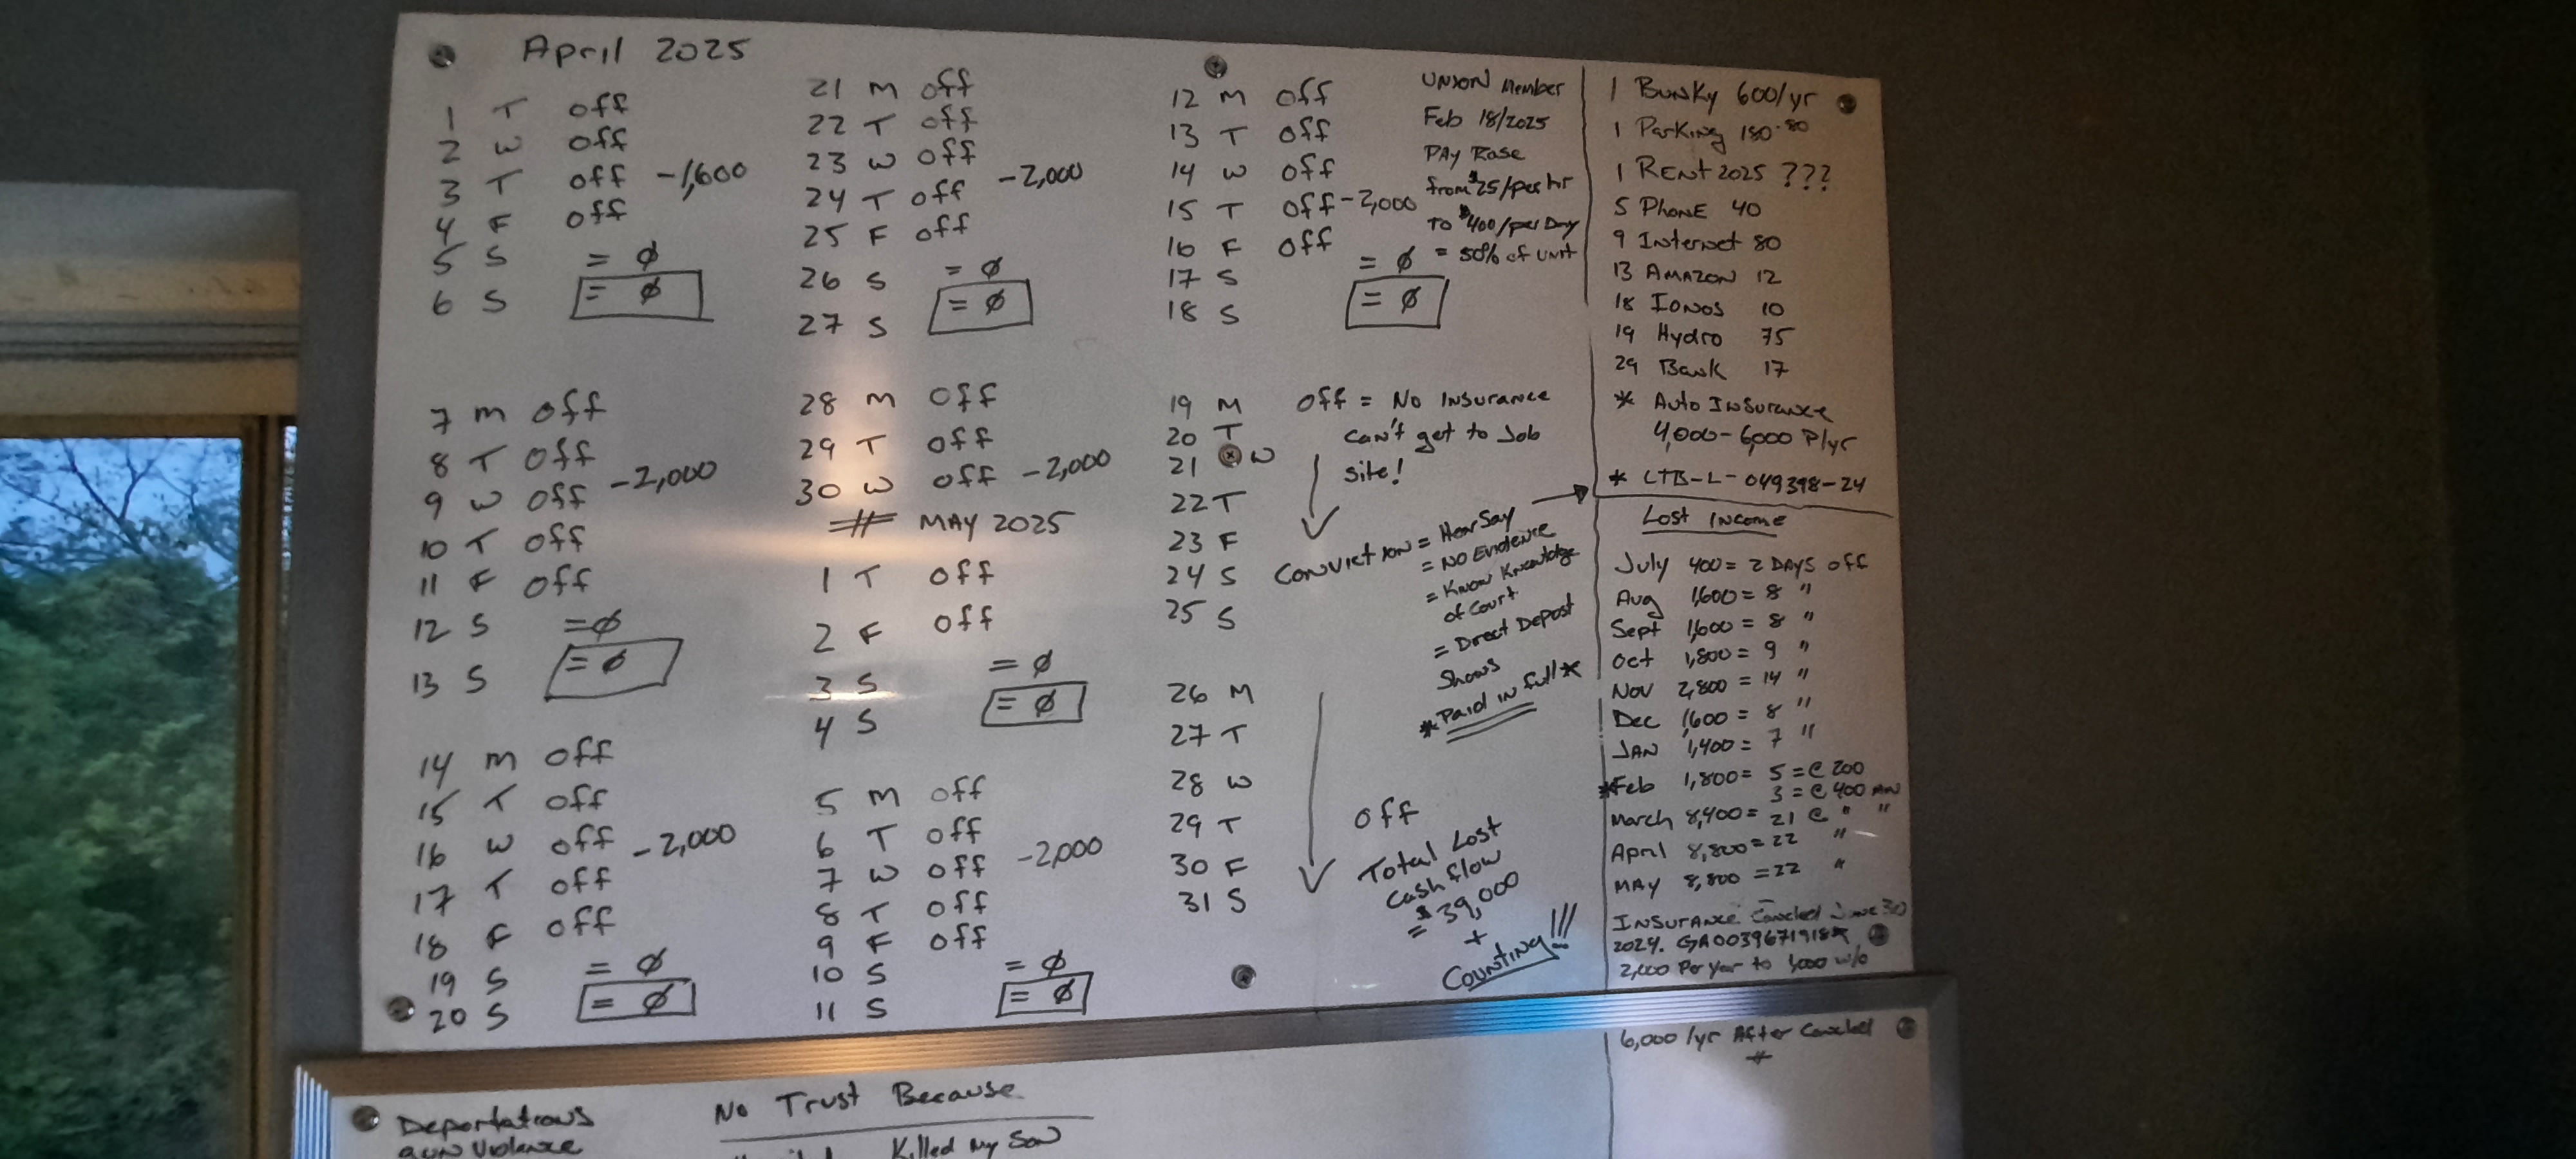 April 2025
1 T off
2 W off
3 T off -1,600
4 F off
5 S = ø
6 S = ø
7 M off
8 T off
9 W off -2,000
10 T off
11 F off
12 S = ø
13 S = ø
14 M off
15 T off
16 W off -2,000
17 T off
18 F off
19 S = ø
20 S = ø
21 M off
22 T off
23 W off
24 T off -2,000
25 F off
26 S = ø
27 S = ø
28 M off
29 T off
30 W off -2,000
# MAY 2025
1 T off
2 F off
3 S = ø
4 S = ø
5 M off
6 T off
7 W off -2,000
8 T off
9 F off
10 S = ø
11 S = ø
12 M off
13 T off
14 W off
15 T off -2,000
16 F off
17 S = ø
18 S = ø
19 M off = No Insurance
20 T can't get to Job
21 W site!
22 T
23 F
24 S
25 S
26 M
27 T
28 W
29 T off
30 F
31 S
UNION Member
Feb 18/2025
PAY Rase
from $25/per hr
To $400/per Day
= 50% of unit
Conviction = HearSay
= NO Evidence
= Know Knowledge
of Court
= Direct Depost
Shows
*Paid in full*
Total Lost
Cash flow
= $39,000
+
Counting!!!
1 Bunky 600/yr
1 Parking 180.80
1 RENT 2025 ???
5 PhonE 40
9 Internet 80
13 AMAZON 12
18 IONOS 10
19 Hydro 75
29 Bank 17
* Auto Insurance
4,000-6,000 P/yr
* LTB-L-049398-24
Lost Income
July 400 = 2 DAYS off
Aug 1,600 = 8 "
Sept 1,600 = 8 "
Oct 1,800 = 9 "
Nov 2,800 = 14 "
Dec 1,600 = 8 "
JAN 1,400 = 7 "
*Feb 1,800 = 5 = @ 200
3 = @ 400
March 8,400 = 21 @ " "
April 8,800 = 22 "
MAY 8,800 = 22 "
INSURANCE Canceled June 30
2024.
2,000 Per year to w/o
6,000/yr After Canceled
#
Deportations
gun Violence
No Trust Because
Killed my Son